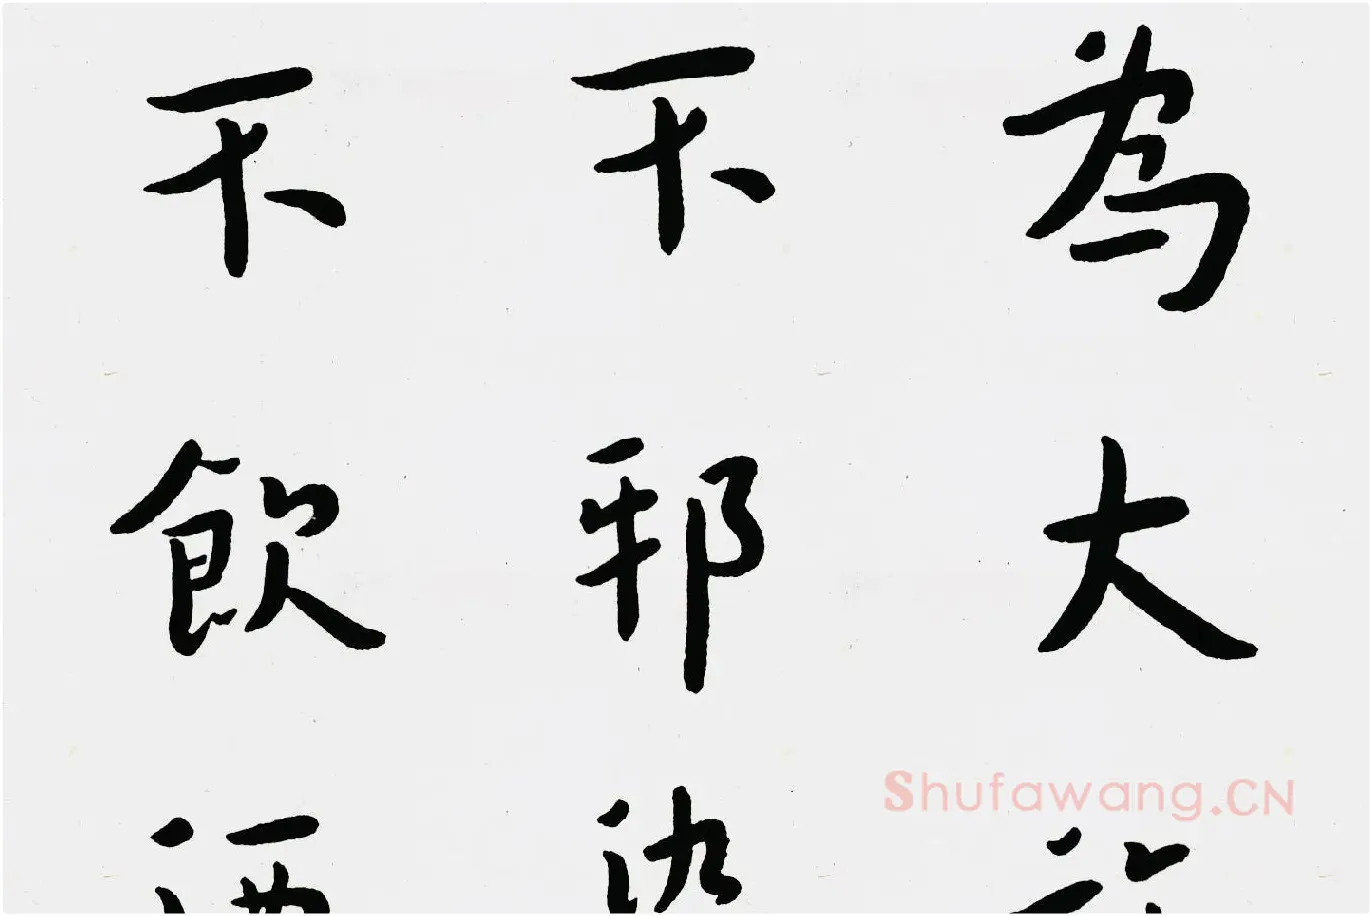 為大
不邪
不飲
Shufawang.CN